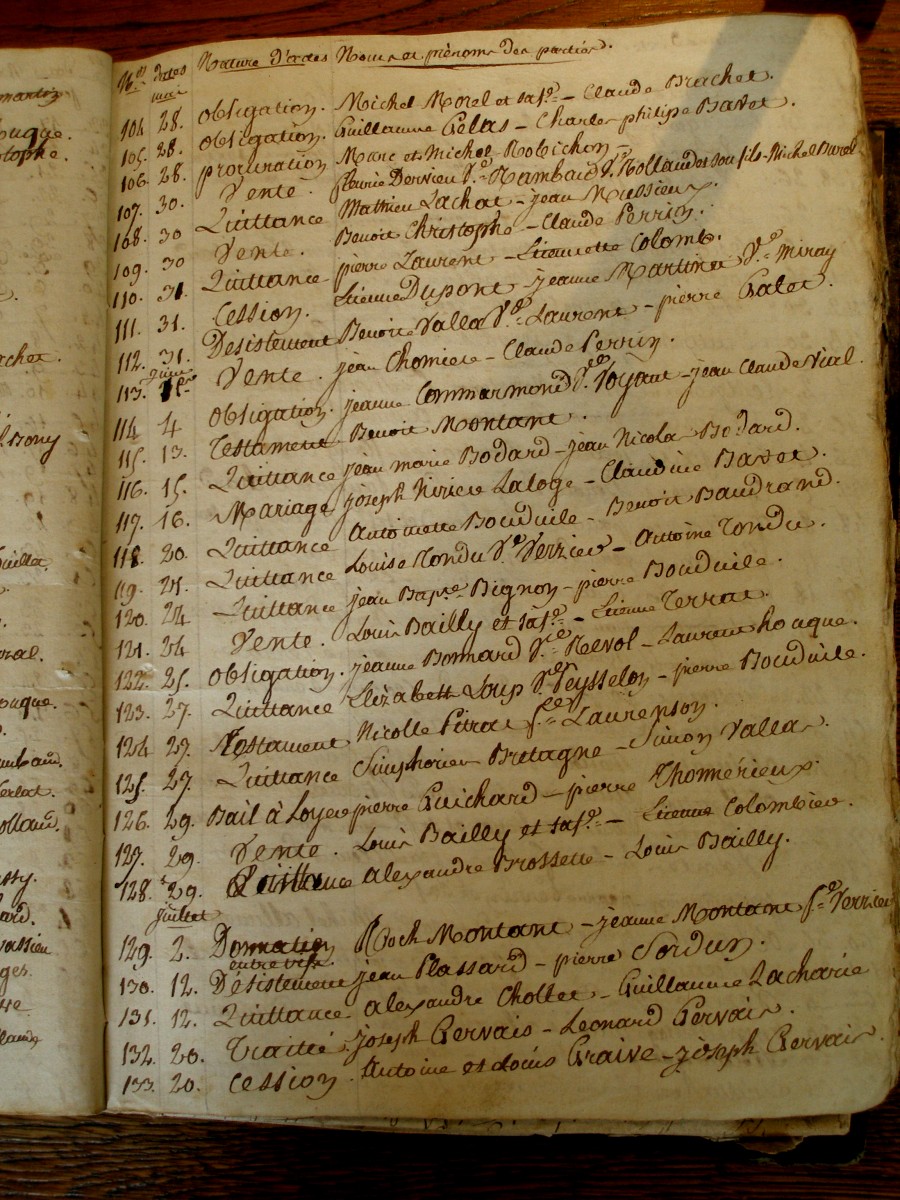 martin
ouque.
stophe.
e.
achet.
l Bony
uillat.
ouque.
mbaud.
erlat.
olland.
ssy.
ard.
vassieu
ges.
Nos dates Nature d'actes Noms et prénoms des parties.
mai
104 28. obligation. Michel Morel et sa fe. - Claude Brachet.
105. 28. obligation. Guillaume Gelas - Charles philipe Bavet.
106. 28. procuration Marc et Michel Robichon -
107. 30. Vente. fleurie Dervieu Ve. Rambaud Ve. Rolland et son fils - Michel
108. 30 Quittance Mathieu Lachat - jean Mussieux.
109. 30 Vente. Benoit Christophe - Claude Perrin.
110. 31. Quittance pierre Laurent - Etiennette Colomb.
111. 31. Cession. Etienne Dupont - jeanne Martinat Ve. Miray
112. 31. Desistement Benoite Valla Ve. Laurent - pierre Galet.
juin
113. 1er Vente. jean Chomiere - Claude Perrin.
114 4 obligation. jeanne Commarmond Ve. Voyant - jean Claude Vial
115. 13. Testament Benoit Montant.
116. 15. Quittance jean marie Bodard - jean Nicolas Bodard.
117. 16. Mariage joseph Riviere Laloge - Claudine Bavet.
118. 20. Quittance Antoinette Bouduile - Benoit Baudrand.
119. 21. Quittance Louise Rondu Ve. Verrier - Antoine Rondu.
120. 24 Quittance jean Bapte. Bignon - pierre Bouduile.
121. 24 Vente. Louis Bailly et sa fe. - Etienne Terrat.
122. 25. obligation. jeanne Bonnard Ve. Revol - Laurent houque.
123. 27. Quittance Elizabett Loup Ve. Peysselon - pierre Bouduile.
124 27. Testament Nicolle Pitrat fe. Laurenson.
125. 27. Quittance Simphorien Bretagne - Simon Vallas.
126. 29. Bail à Loyer pierre Guichard - pierre Thomérieux.
127. 29. Vente. Louis Bailly et sa fe. - Etienne Colombier.
128. 29. Quittance alexandre Brossette - Louis Bailly.
juillet
129. 2. Donnation Roch Montant - jeanne Montant fe. Verrier
entre vifs.
130. 12. Desistement jean Plassard - pierre Sordun.
131. 12. Quittance alexandre Chollet - Guillaume Lacharie
132. 20. Traité. joseph Gervais - Leonard Gervais.
133. 20. cession. Antoine et Louis Graive - joseph Gervais